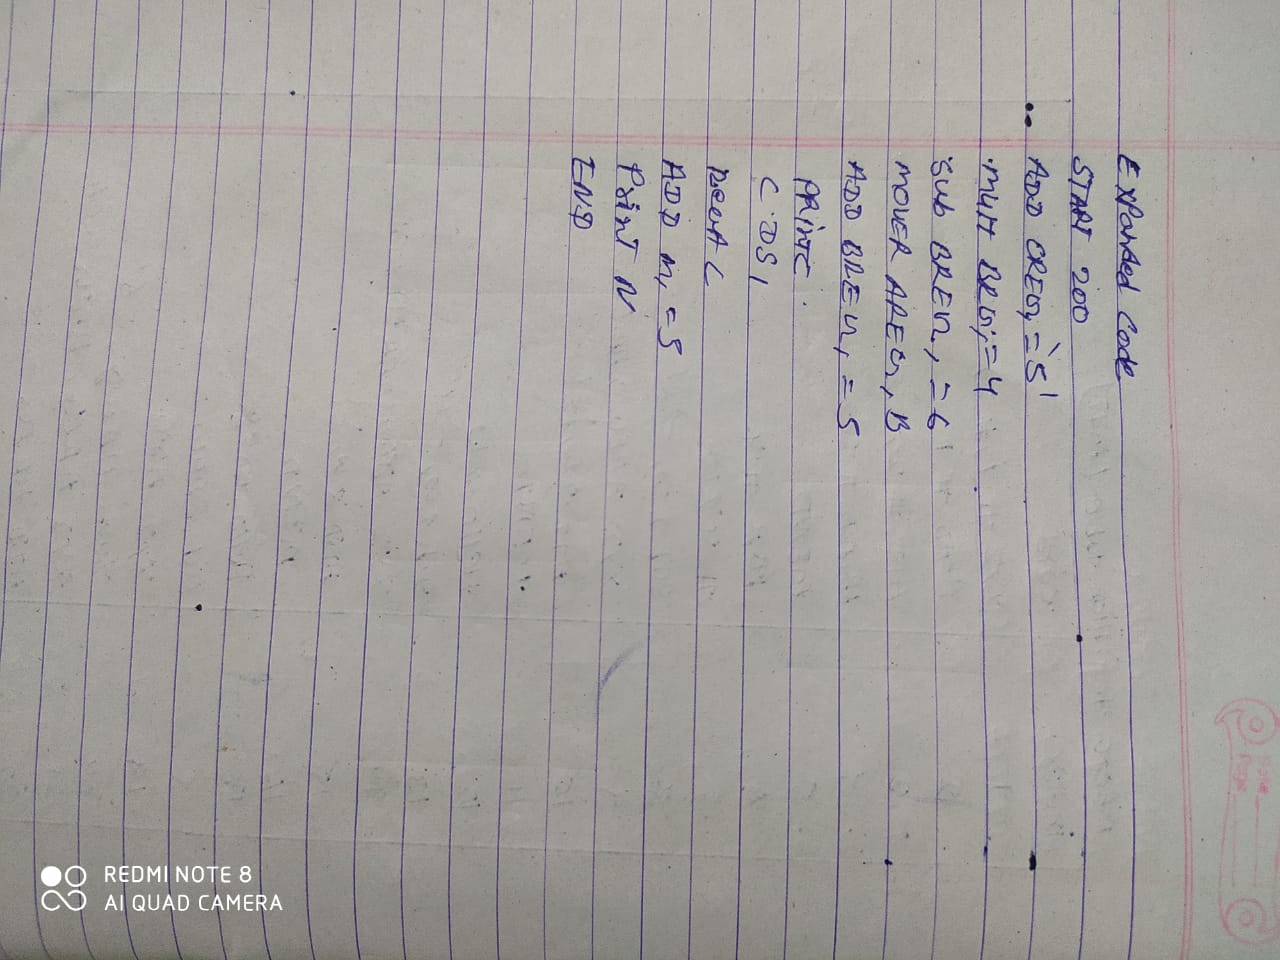 Date
Page
Expanded Code
START 200
ADD CREG, = '5'
MULT BRG, = 4
Sub BREG, = 6
MOVER AREG, B
ADD BREG, = 5
PRINT C
C DS 1
Read C
ADD m, = 5
Print N
END
REDMI NOTE 8
AI QUAD CAMERA